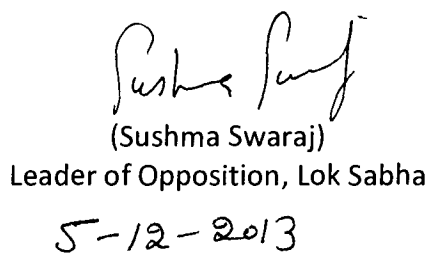 Sushma Swaraj
(Sushma Swaraj)
Leader of Opposition, Lok Sabha
5-12-2013